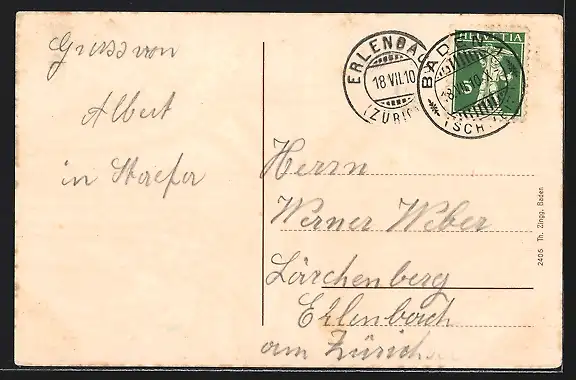 Gruss von
Albert
in Staefa
ERLENBA
18 VII.10
(ZÜRICH
BADEN
18.VII.10
(SCH
HELVETIA
5
Herrn
Werner Weber
Lärchenberg
Erlenbach
am Zürich
2406 Th. Zingg, Baden